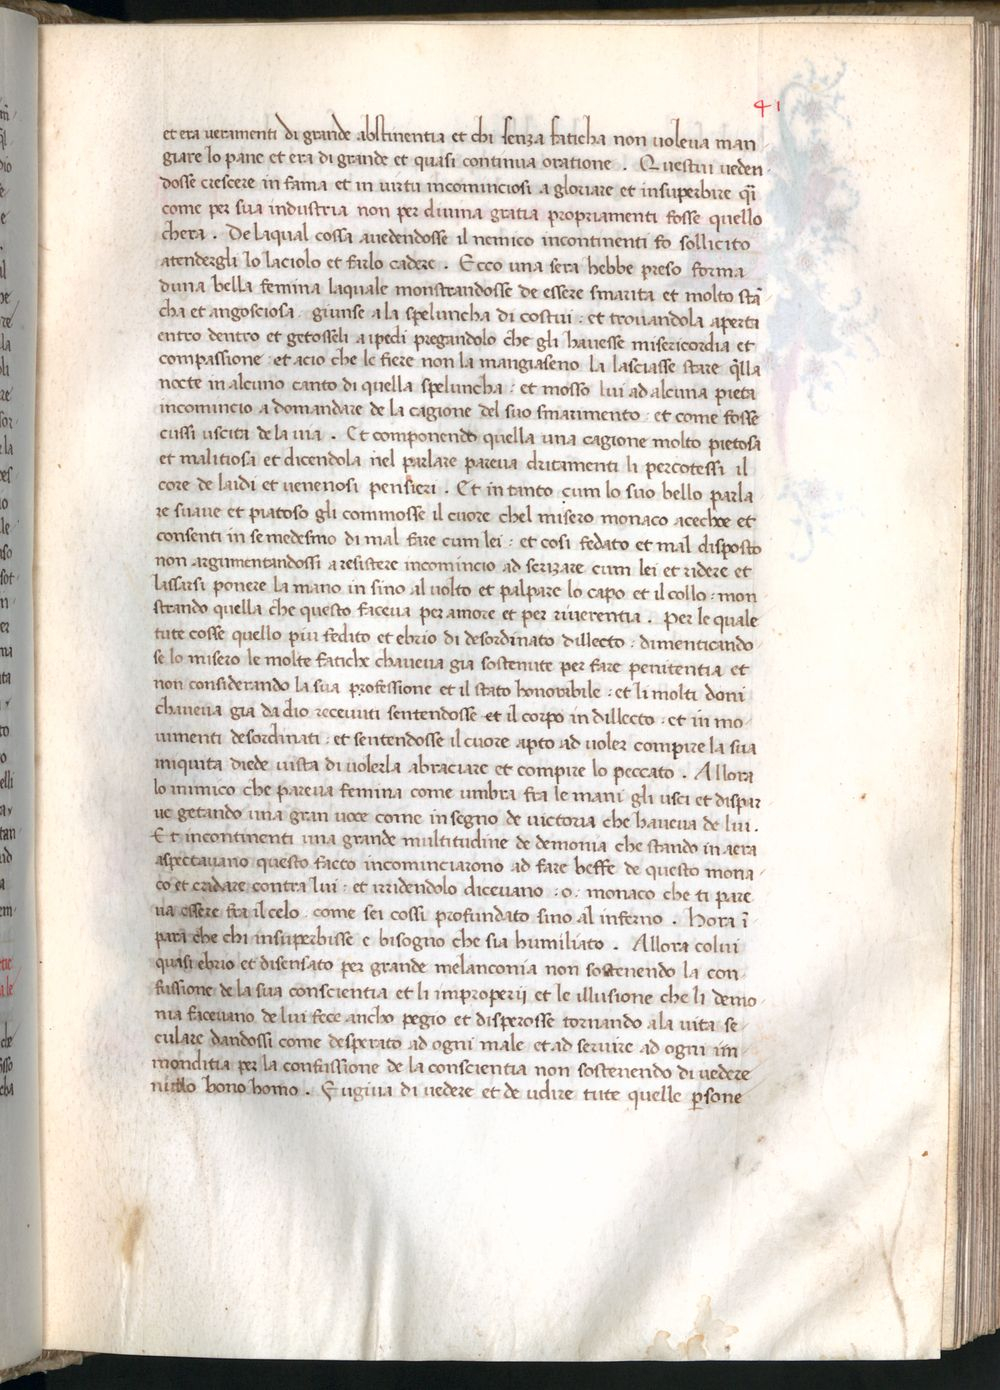 41
et era veramenti di grande abstinentia et chi senza faticha non voleva man
giare lo pane et era di grande et quasi continua oratione . Questui veden
dosse crescere in fama et in virtu incominciosi a gloriare et insuperbire q̃i
come per sua industria non per divina gratia propriamenti fosse quello
chera . De laqual cossa avedendosse il nemico incontinenti fo sollicito
atendergli lo laciolo et farlo cadere . Ecco una sera hebbe preso forma
duna bella femina laquale monstrandosse de essere smarita et molto stã
cha et angosciosa . giunse a la speluncha di costui : et trovandola aperta
entro dentro et getosseli a ipedi pregandolo che gli havesse misericordia et
compassione : et acio che le fiere non la mangiaseno la lasciasse stare q̃lla
nocte in alcuno canto di quella speluncha : et mosso lui ad alcuna pieta
incomincio a domandare de la cagione del suo smarimento : et come fosse
cussi uscita de la via . Et componendo quella una cagione molto pietosa
et malitiosa et dicendola nel parlare pareva dritamenti li percotessi il
core de laidi et venenosi pensieri . Et in tanto cum lo suo bello parla
re suave et piatoso gli commosse il cuore chel misero monaco acechoe et
consenti in se medesmo di mal fare cum lei : et cosi fedato et mal disposto
non argumentandossi a resistere incomincio ad scrizare cum lei et ridere et
lassarsi ponere la mano in sino al volto et palpare lo capo et il collo : mon
strando quella che questo faceva per amore et per riverentia . Per le quale
tute cosse quello piu fedito et ebrio di desordinato dillecto : dimenticando
se lo misero le molte fatiche chaveva gia sostenute per fare penitentia et
non considerando la sua professione et il stato honoribile : et li molti doni
chaveva gia da dio recevuti sentendosse et il corpo in dillecto : et in mo
vimenti desordinati : et sentendosse il cuore apto ad voler compire la sua
iniquita diede vista di volerla abraciare et compire lo peccato . Allora
lo inimico che pareva femina come umbra fra le mani gli usci et dispar
ve getando una gran voce come in segno de victoria che haveva de lui .
Et incontinenti una grande multitudine de demonia che stando in aera
aspectavano questo facto incominciarono ad fare beffe de questo mona
co et cridare contra lui : et irridendolo dicevano : o : monaco che ti pare
va essere fra il celo . come sei cossi profundato sino al inferno . Hora ĩ
para che chi insuperbisse e bisogno che sia humiliato . Allora colui
quasi ebrio et disensato per grande melanconia non sostenendo la con
fussione de la sua conscientia et li improperij et le illusione che li demo
nia facevano de lui fece ancho pegio et disperosse tornando a la vita se
culare dandossi come desperato ad ogni male et ad servire ad ogni im
monditia per la confussione de la conscientia non sostenendo di vedere
nullo bono homo . Fugiva di vedere et de udire tute quelle p̱sone